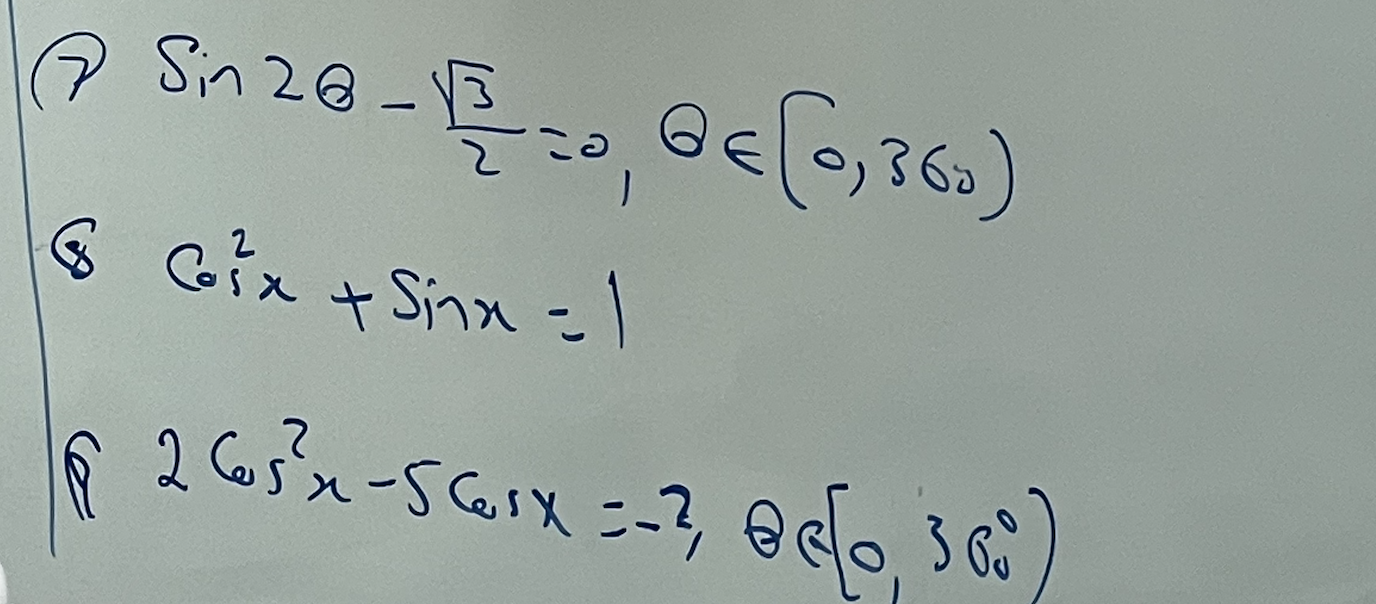 ⑦ Sin 2θ - √3/2 = 0, θ∈[0, 360)
⑧ Cos²x + Sinx = 1
⑨ 2Cos²x - 5Cosx = -2, θ∈[0, 360°)